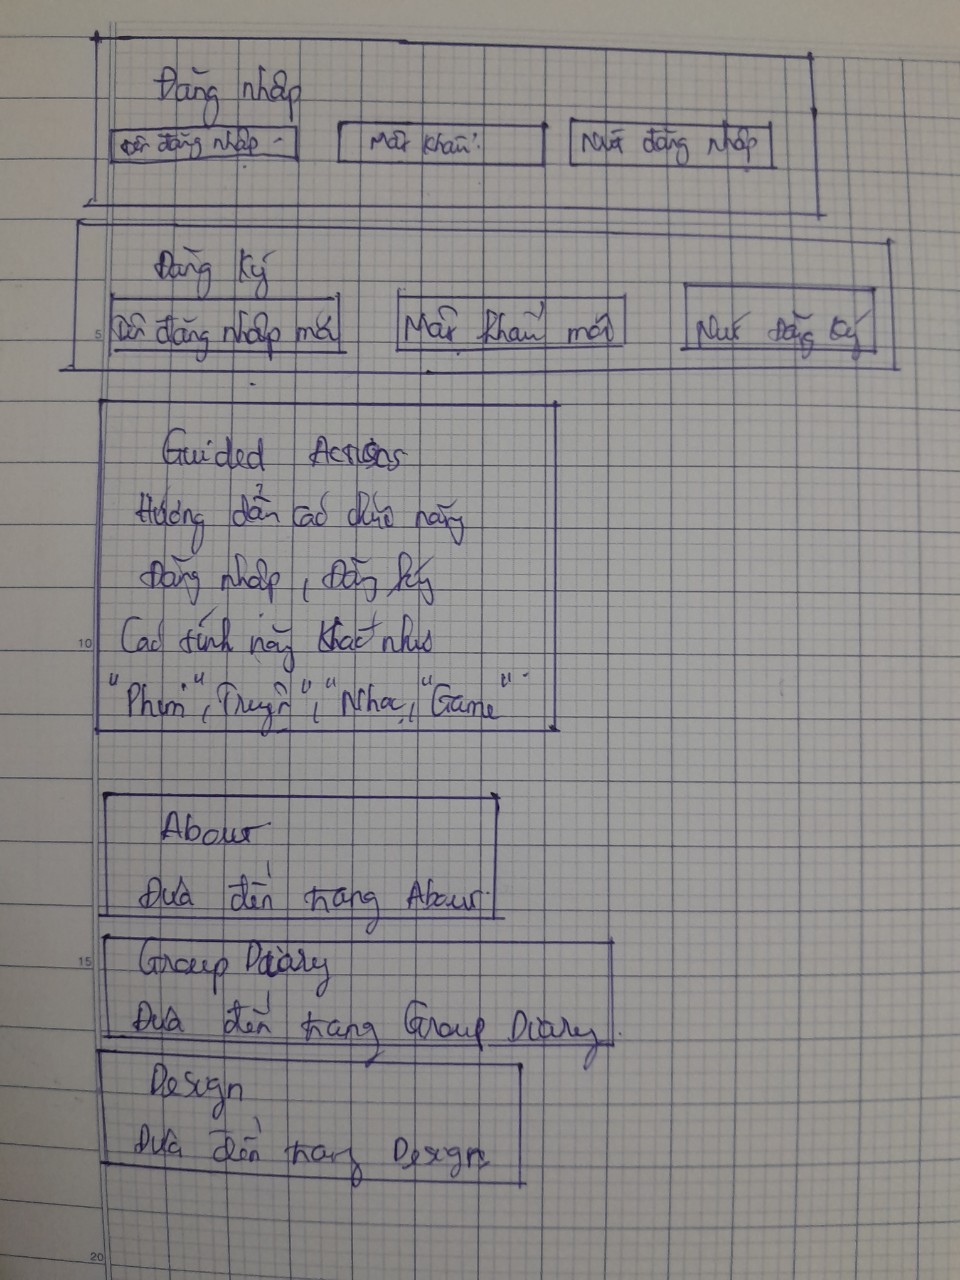 Đăng nhập
Tên đăng nhập
Mật khẩu
Nút đăng nhập
Đăng ký
Tên đăng nhập mới
Mật khẩu mới
Nút đăng ký
Guided Actions
Hướng dẫn các chức năng
Đăng nhập, Đăng ký
Các tính năng khác như
"Phim", "Truyện", "Nhạc, "Game"
About
Đưa đến trang About
Group Diary
Đưa đến trang Group Diary.
Design
Đưa đến trang Design
5
10
15
20